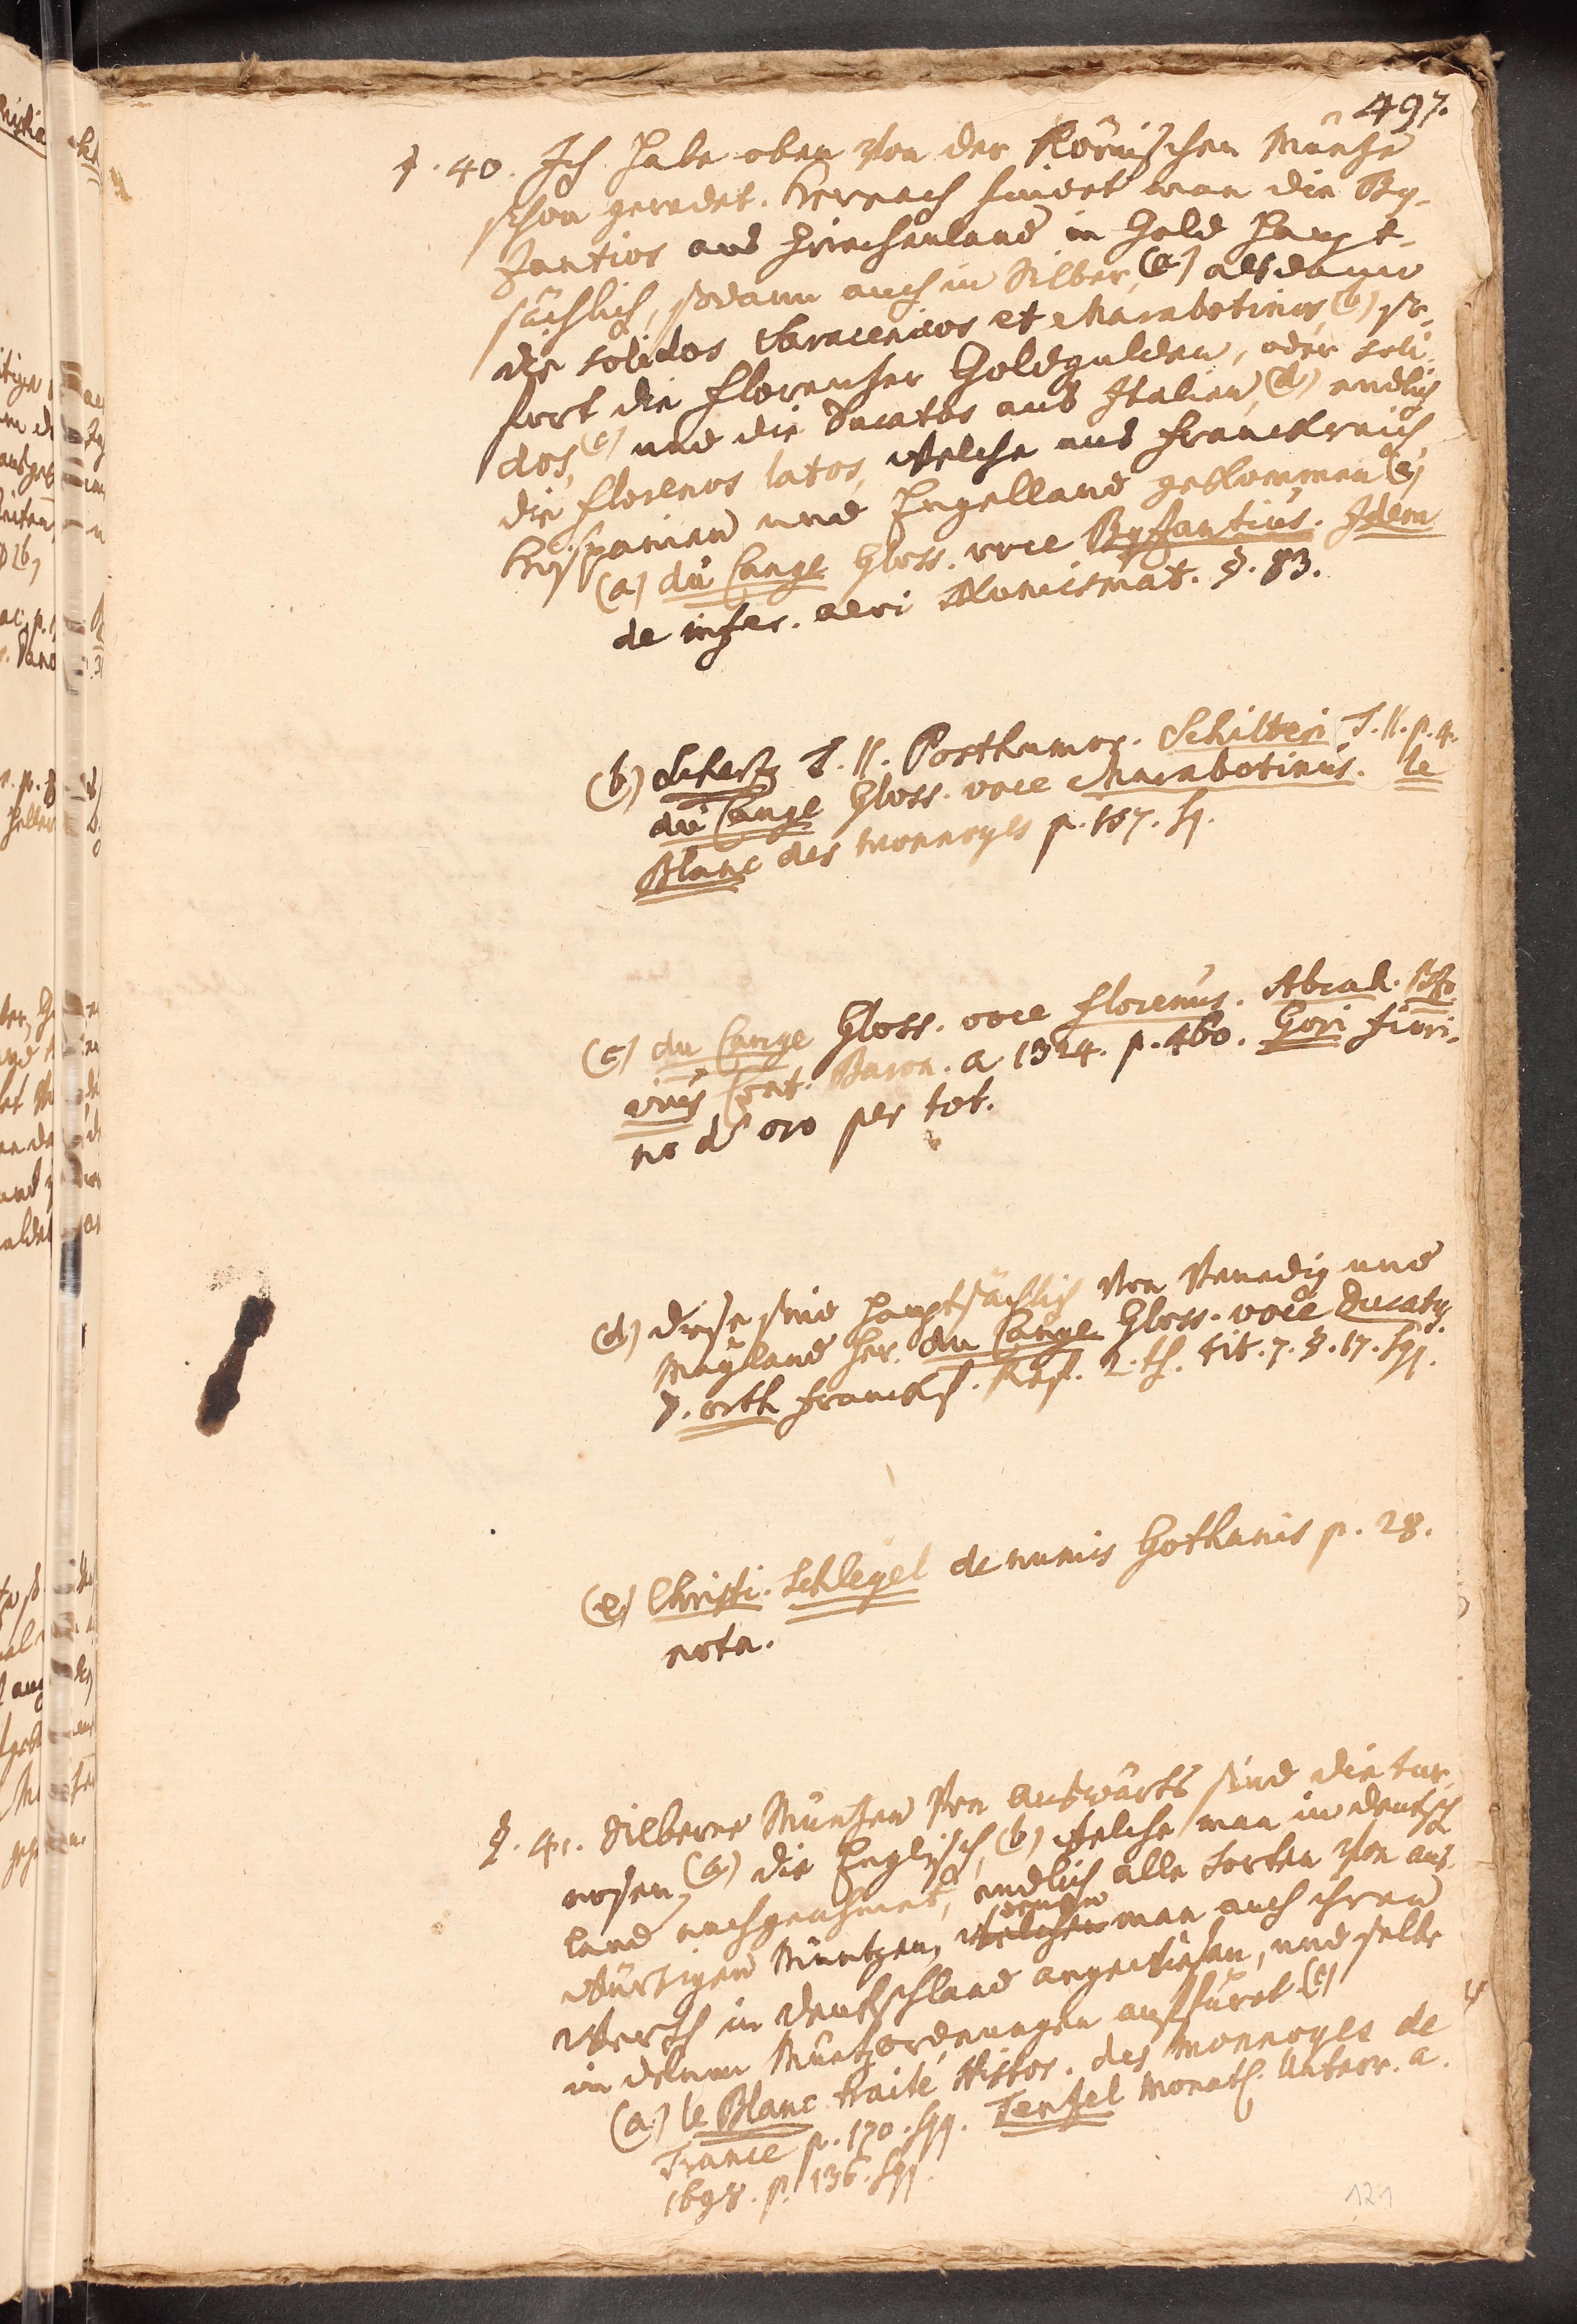 497.
§. 40. Ich habe oben von der Römischen Müntze
schon geredet. Hernach findet man die By-
zantios aus Griechenland in Gold haupt-
sächlich, sodann auch in Silber, (a) alsdann
die solidos Saracenicos et Marabotinos (b) so-
fort die Florentzer Goldgulden, oder soli-
dos, (c) und die Ducatos aus Italien, (d) endlich
die florenos latos, welche aus Franckreich
Hispanien und Engelland gekommen (e)
(a) du Cange Gloss. voce Byzantius. Idem
de infer. aevi Numismat. §. 83.
(b) Scherz T. II. Posthumor. Schilteri T. II. p. 4.
du Cange Gloss. voce Marabotinus. le
Blanc des monnoyes p. 167. sq.
(c) du Cange Gloss. voce florenus. Abrah. Bzo
vius Cont. Baron. a 1324. p. 460. Gori fiori-
no d' oro per tot.
(d) diese sind hauptsächlich von Venedig und
Mayland her. du Cange Gloss. voce Ducatus
J. orth Franckf. Ref. 2. th. tit. 7. §. 17. sqq.
(e) Christi. Schlegel de numis Gothanis p. 28.
nota.
§. 41. Silberne Müntzen von auswärts sind die tur-
nosen, (a) die Englisch, (b) welche man in deutsch
land nachgeahmet, endlich alle sorten von aus-
denen
wärtigen Müntzen, welchen man auch ihren
Werth in deutschland angewiesen, und selbe
in denen Müntzordnungen aufführet (c)
(a) le Blanc traité Histor. des monnoyes de
France p. 170. sqq. Tenzel Monatl. Unterr. a.
1698. p. 136. sqq.
121